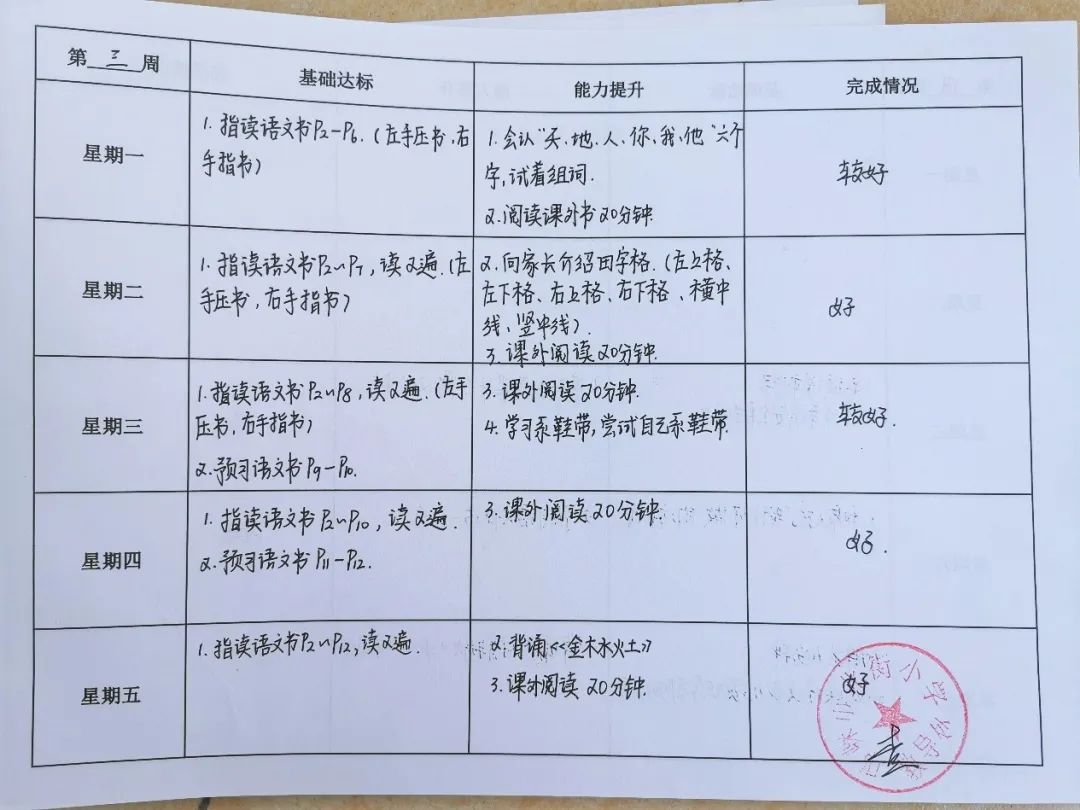 第 三 周
基础达标
能力提升
完成情况
星期一
1. 指读语文书P2-P6.(左手压书,右
手指书)
1.会认“天、地、人、你、我、他”六个
字,试着组词.
2.阅读课外书20分钟
较好
星期二
1. 指读语文书P2~P7,读2遍.(左
手压书,右手指书)
2.向家长介绍田字格.(左上格、
左下格、右上格、右下格、横中
线、竖中线).
3.课外阅读20分钟.
好
星期三
1.指读语文书P2~P8,读2遍.(左手
压书,右手指书)
2.预习语文书P9-P10.
3.课外阅读20分钟.
4.学习系鞋带,尝试自己系鞋带.
较好.
星期四
1. 指读语文书P2~P10,读2遍.
2.预习语文书P11-P12.
3.课外阅读20分钟.
好.
星期五
1.指读语文书P2~P12,读2遍.
2.背诵《金木水火土》
3.课外阅读20分钟.
好
街小学